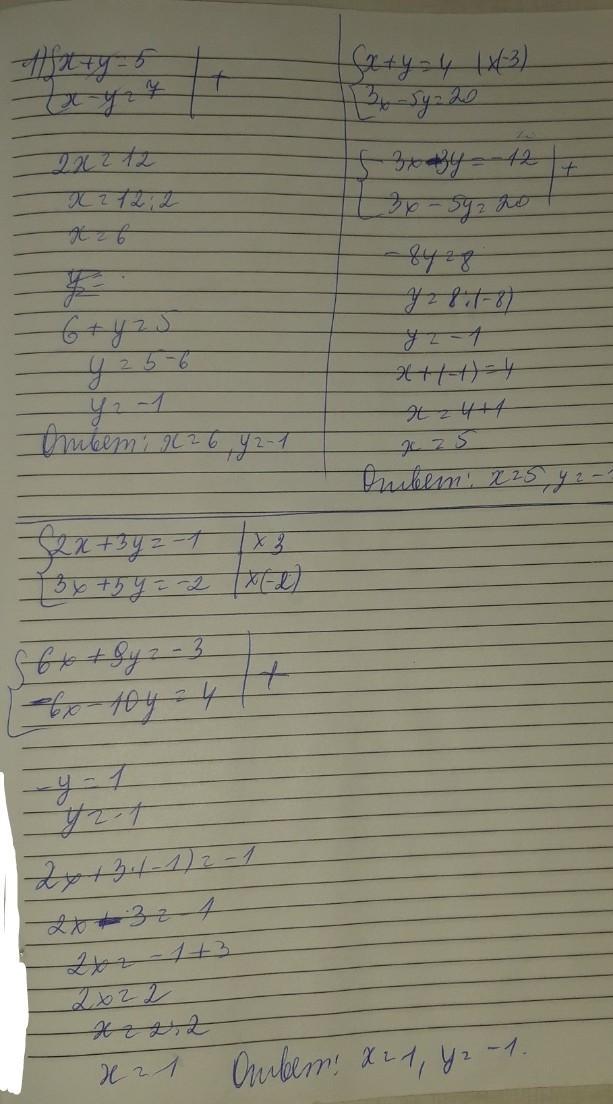 1) {x+y=5 | +
{x-y=7
2x=12
x=12:2
x=6
y=
6+y=5
y=5-6
y=-1
Ответ: x=6, y=-1
{x+y=4 |×(-3)
{3x-5y=20
{-3x-3y=-12 | +
{3x-5y=20
-8y=8
y=8:(-8)
y=-1
x+(-1)=4
x=4+1
x=5
Ответ: x=5, y=-1
{2x+3y=-1 |×3
{3x+5y=-2 |×(-2)
{6x+9y=-3 | +
{-6x-10y=4
-y=1
y=-1
2x+3·(-1)=-1
2x-3=-1
2x=-1+3
2x=2
x=2:2
x=1
Ответ: x=1, y=-1.